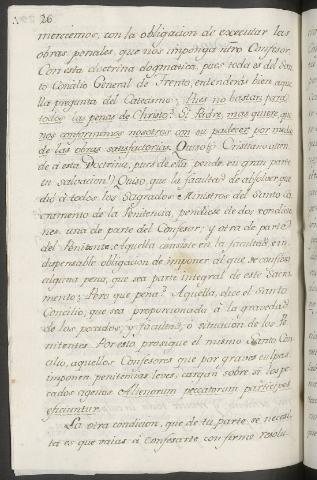 26
merecemos, con la obligacion de executar las
obras penales, que nos imponga ntro Confesor.
Con esta doctrina dogmatica, pues toda es del San-
to Concilio General de Trento, entenderás bien aque-
lla pregunta del Catecismo: Pues no bastan para
todos las penas de Christo? Si Padre, mas quiere, que
nos conformemos nosotros con su padecer por medio
de las obras satisfactorias. Quiso (ò Cristiano atien-
de á esta Doctrina, pues de ella pende en gran parte
tu salvacion!) Quiso, que la facultad de absolver, que
dió á todos los Sagrados Ministros del Santo Sa-
cramento de la Penitencia, pendiese de dos condicio-
nes: una de parte del Confesor; y otra de parte
del Penitente. Aquella consiste en la facultad, è in-
dispensable obligacion de imponer al que se confiesa
alguna pena, que sea parte integral de este Sacra-
mento; Pero que pena? Aquella, dice el Santo
Concilio, que sea proporcionada à la gravedad
de los pecados, y facultad, o situacion de los Pe-
nitentes. Por esto prosigue el mismo Santo Con-
cilio, aquellos Confesores que por graves culpas
imponen penitencias leves, cargan sobre si los pe-
cados agenos. Alienorum peccatorum participes
efficiuntur.
La otra condicion, que de tu parte se necesi-
ta es que vaias á Confesarte con firme resolu-